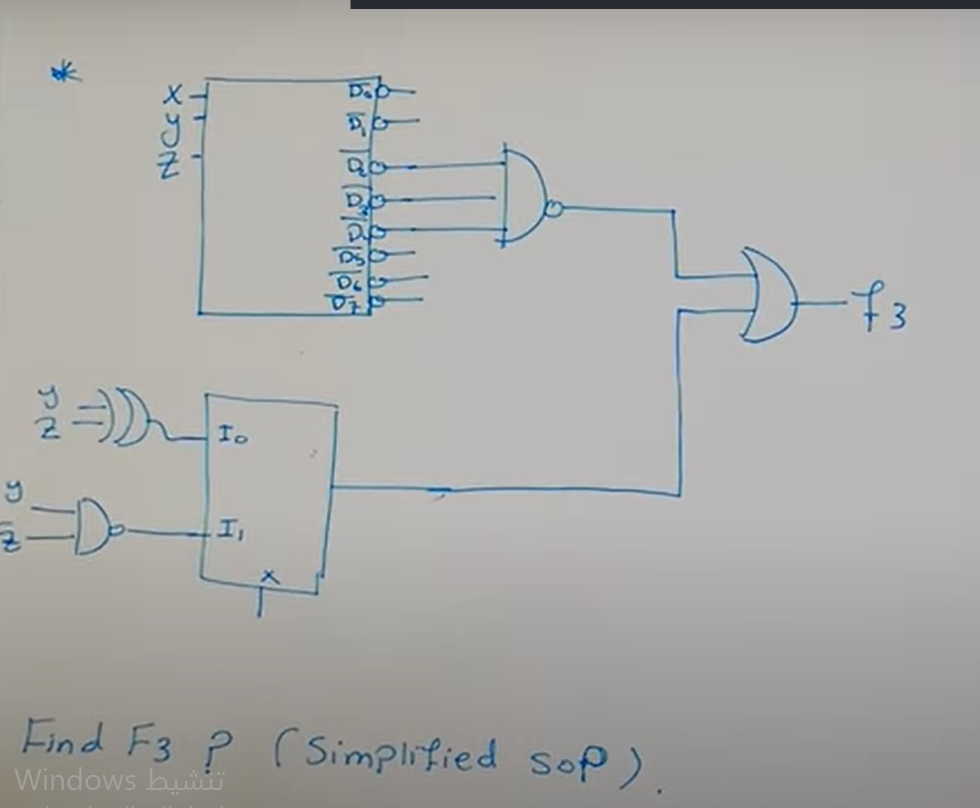 *
x
y
z
D̅₀
D̅₁
D̅₂
D̅₃
D̅₅
D̅₆
D̅₇
f3
y
z
I₀
y
z̅
I₁
x
Find F3 ? (Simplified SOP).
تنشيط Windows